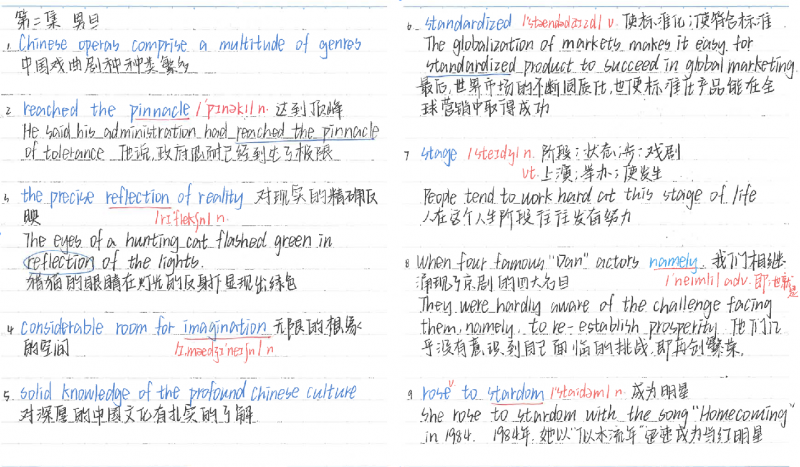 第二集 男旦
1. Chinese operas comprise a multitude of genres
中国戏曲剧种种类繁多
2. reached the pinnacle /ˈpɪnəkl/ n. 达到顶峰
He said his administration had reached the pinnacle
of tolerance 他说,政府忍耐已经到达了极限
3. the precise reflection of reality 对现实的精确反
映
/rɪˈflekʃn/ n.
The eyes of a hunting cat flashed green in
reflection of the lights.
猎猫的眼睛在灯光的反射下显现出绿色
4. considerable room for imagination 无限的想象
的空间
/ɪˌmædʒɪˈneɪʃn/ n
5. solid knowledge of the profound Chinese culture
对深厚的中国文化有扎实的了解
6. standardized /ˈstændədaɪzd/ v. 使标准化;使符合标准
The globalization of markets makes it easy for
standardized product to succeed in global marketing.
最后,世界市场的不断国际化,也使标准化产品能在全
球营销中取得成功
7 stage /steɪdʒ/ n. 阶段;状态;戏剧
vt. 上演;举办;使发生
People tend to work hard at this stage of life
人在这个人生阶段往往发奋努力
8 When four famous "Dan" actors namely, 我们相继
涌现了京剧的四大名旦
/ˈneɪmli/ adv. 即;也就是
They were hardly aware of the challenge facing
them, namely, to re-establish prosperity 他们几
乎没有意识到自己面临的挑战,即再创繁荣.
9 rose to stardom /ˈstɑːdəm/ n. 成为明星
v.
She rose to stardom with the song "Homecoming"
in 1984. 1984年,她以"似水流年"迅速成为当红明星